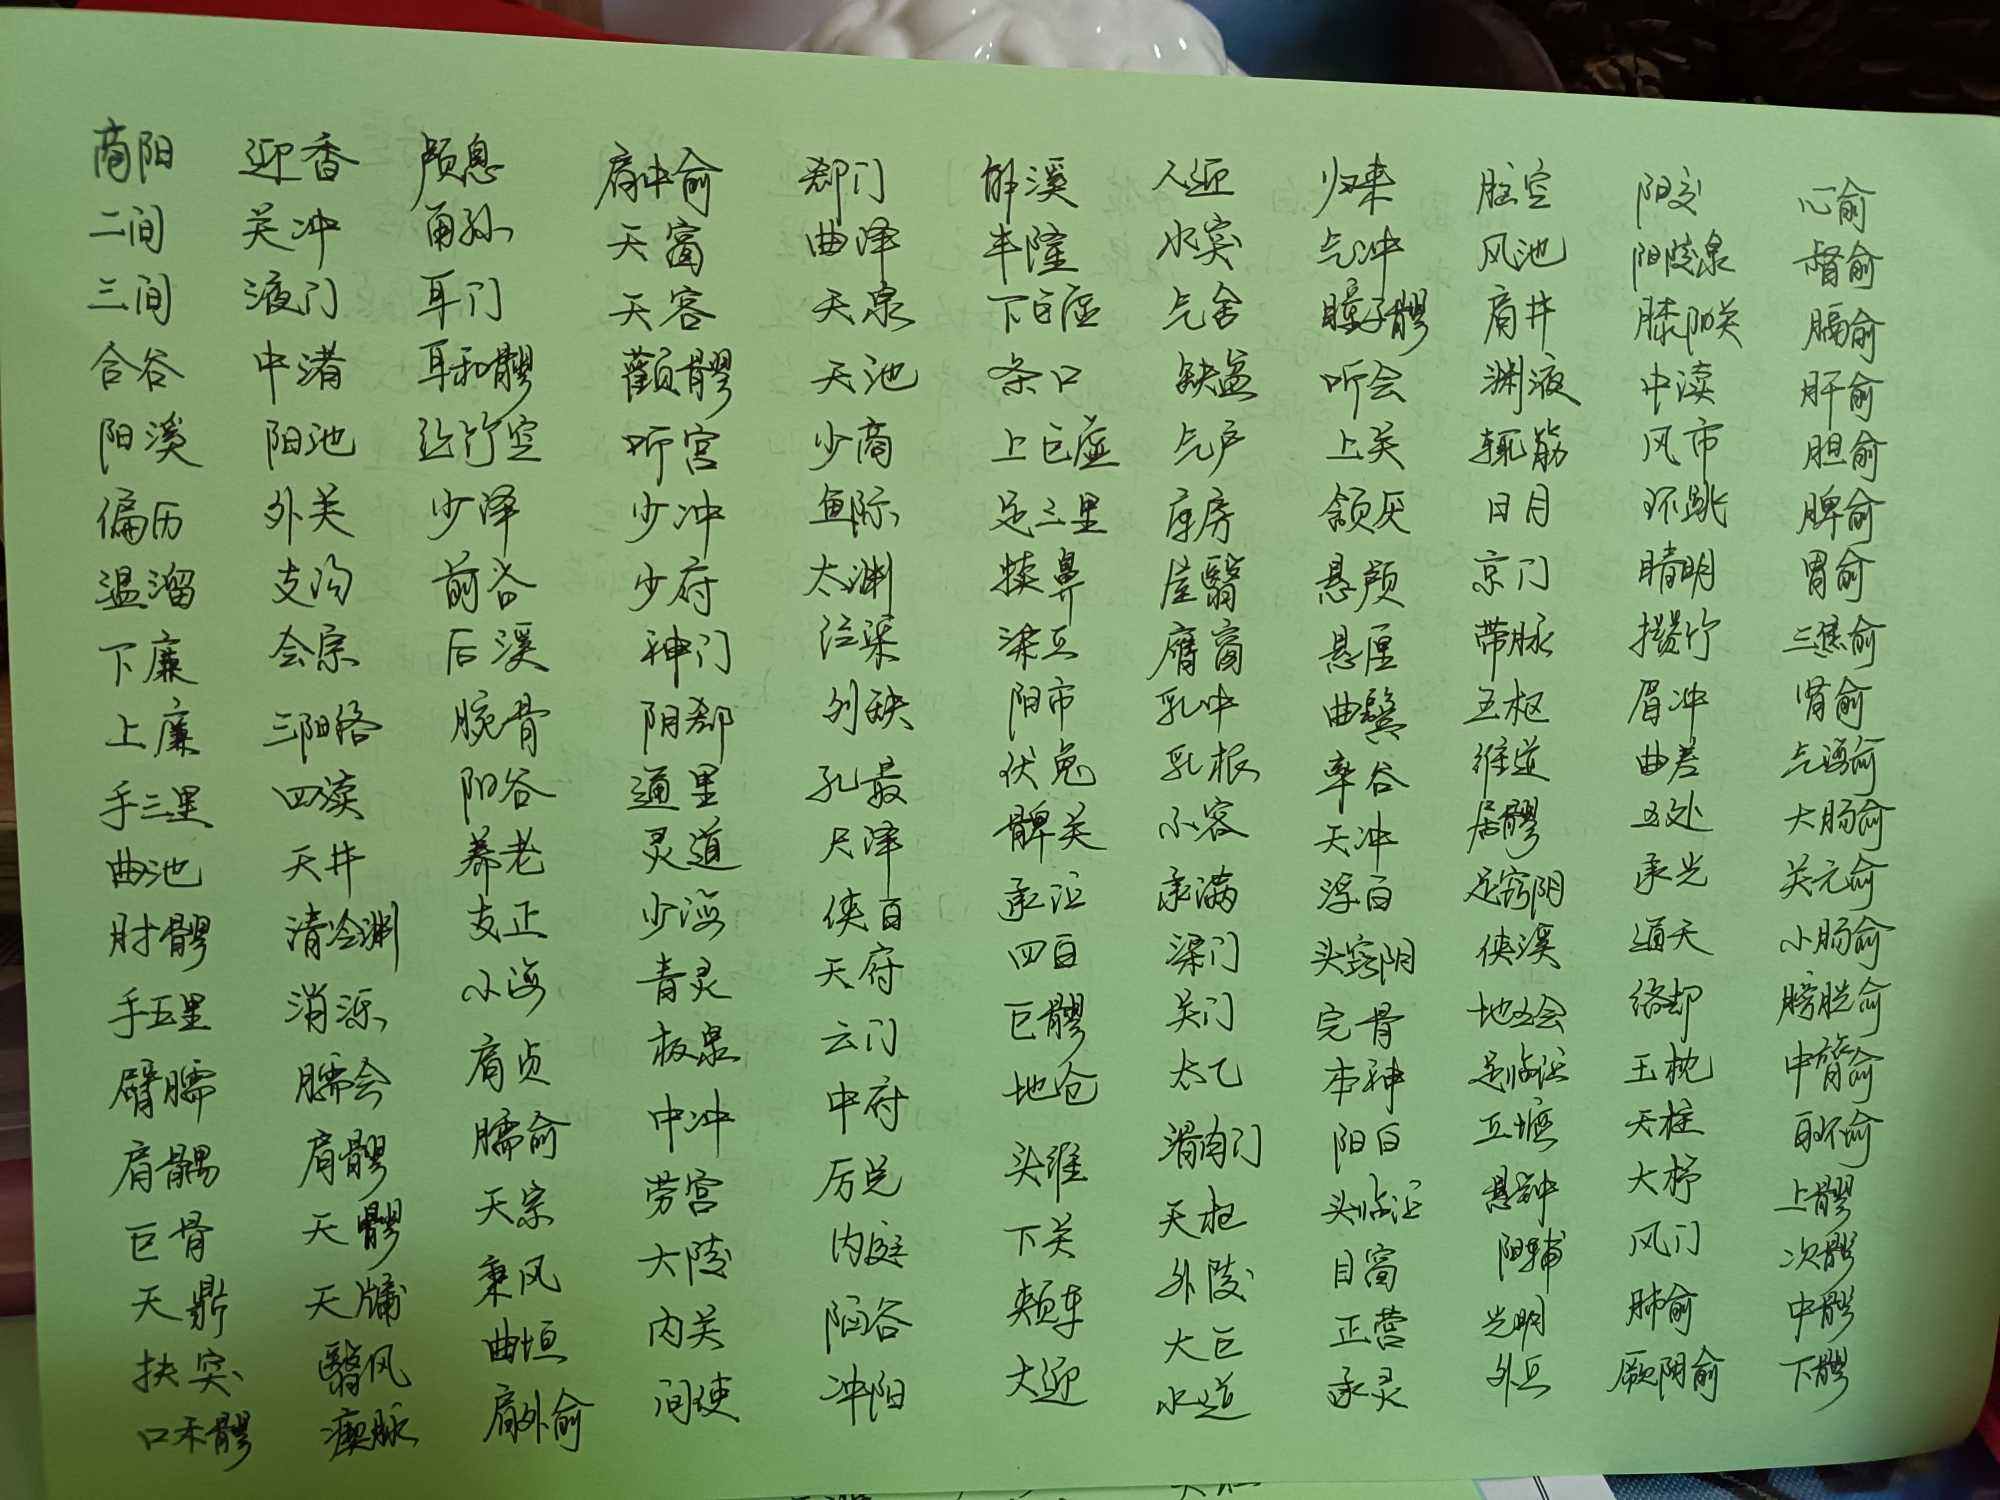 商阳
二间
三间
合谷
阳溪
偏历
温溜
下廉
上廉
手三里
曲池
肘髎
手五里
臂臑
肩髃
巨骨
天鼎
扶突
口禾髎
迎香
关冲
液门
中渚
阳池
外关
支沟
会宗
三阳络
四渎
天井
清冷渊
消泺
臑会
肩髎
天髎
天牖
翳风
瘈脉
颅息
角孙
耳门
耳和髎
丝竹空
少泽
前谷
后溪
腕骨
阳谷
养老
支正
小海
肩贞
臑俞
天宗
秉风
曲垣
肩外俞
肩中俞
天窗
天容
颧髎
听宫
少冲
少府
神门
阴郄
通里
灵道
少海
青灵
极泉
中冲
劳宫
大陵
内关
间使
郄门
曲泽
天泉
天池
少商
鱼际
太渊
经渠
列缺
孔最
尺泽
侠白
天府
云门
中府
厉兑
内庭
陷谷
冲阳
解溪
丰隆
下巨虚
条口
上巨虚
足三里
犊鼻
梁丘
阳市
伏兔
髀关
承泣
四白
巨髎
地仓
头维
下关
颊车
大迎
人迎
水突
气舍
缺盆
气户
库房
屋翳
膺窗
乳中
乳根
不容
承满
梁门
关门
太乙
滑肉门
天枢
外陵
大巨
水道
归来
气冲
瞳子髎
听会
上关
颔厌
悬颅
悬厘
曲鬓
率谷
天冲
浮白
头窍阴
完骨
本神
阳白
头临泣
目窗
正营
承灵
脑空
风池
肩井
渊液
辄筋
日月
京门
带脉
五枢
维道
居髎
足窍阴
侠溪
地五会
足临泣
丘墟
悬钟
阳辅
光明
外丘
阳交
阳陵泉
膝阳关
中渎
风市
环跳
睛明
攒竹
眉冲
曲差
五处
承光
通天
络却
玉枕
天柱
大杼
风门
肺俞
厥阴俞
心俞
督俞
膈俞
肝俞
胆俞
脾俞
胃俞
三焦俞
肾俞
气海俞
大肠俞
关元俞
小肠俞
膀胱俞
中膂俞
白环俞
上髎
次髎
中髎
下髎